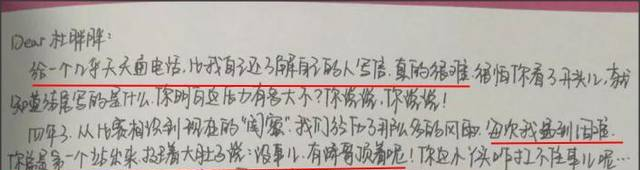 Dear 杜胖胖：
给一个几乎天天通电话，比我自己还了解自己的人写信，真的很难，很怕你看了开头儿，就
知道结尾写的是什么，你明白这压力有多大不？你说说，你说说！
四年了，从比赛相识到现在的“闺蜜”，我们经历了那么多的风雨，每次我遇到困难，
你总是第一个站出来，挺着大肚子说：没事儿，有胖哥顶着呢！你这小丫头咋扛不住事儿呢…